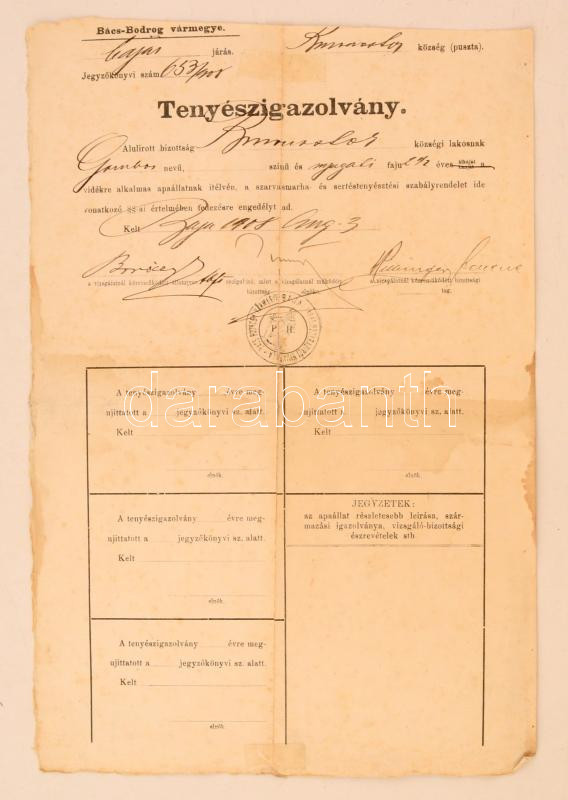 Bács-Bodrog vármegye.
bajai járás. község (puszta).
Jegyzőkönyvi szám 653/908
Tenyészigazolvány.
Alulirott bizottság községi lakosnak
Gombos nevű, szinű és nyugati faju 2 1/2 éves a
vidékre alkalmas apaállatnak itélvén, a szarvasmarha- és sertéstenyésztési szabályrendelet ide
vonatkozó §§-ai értelmében fedezésre engedélyt ad.
Kelt Baja 1908 Aug. 3
a vizsgálatnál közreműködött állatorvos. szolgabiró, mint a vizsgálatnál működött bizottság elnöke. a vizsgálatnál közreműködött bizottsági tag.
P. H.
A tenyészigazolvány évre meg-
ujittatott a jegyzőkönyvi sz. alatt.
Kelt
elnök.
A tenyészigazolvány évre meg-
ujittatott a jegyzőkönyvi sz. alatt.
Kelt
elnök.
A tenyészigazolvány évre meg-
ujittatott a jegyzőkönyvi sz. alatt.
Kelt
elnök.
JEGYZETEK:
az apaállat részletesebb leirása, szár-
mazási igazolványa, vizsgáló-bizottsági
észrevételek stb
A tenyészigazolvány évre meg-
ujittatott a jegyzőkönyvi sz. alatt.
Kelt
elnök.
darabanth